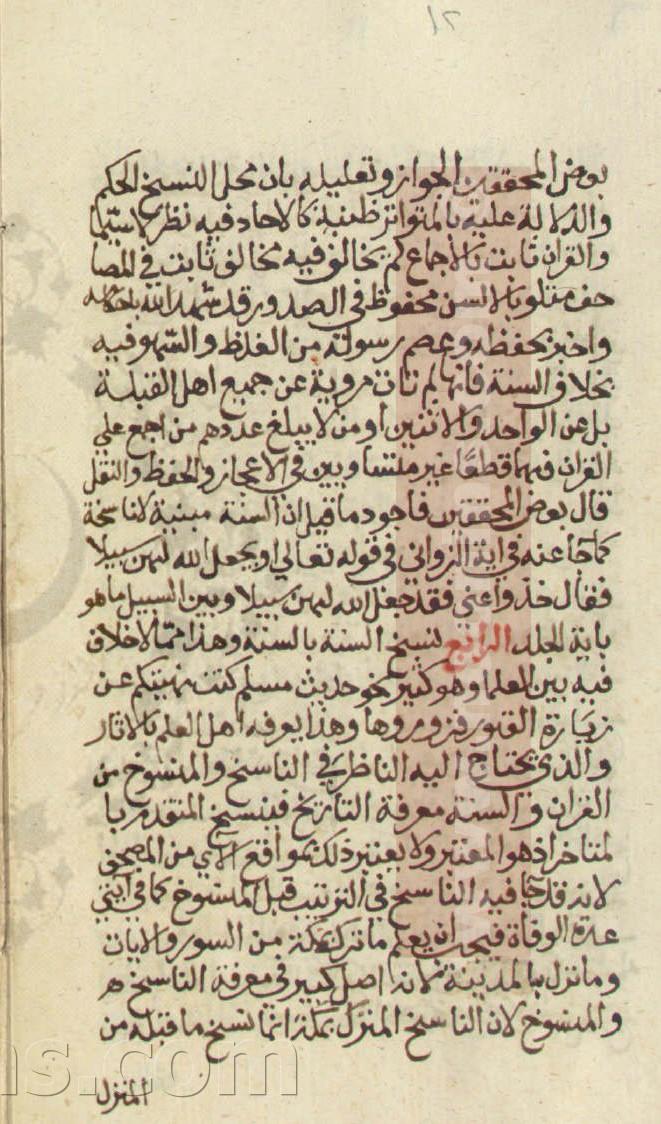 ١٢
بعض المحققين الجواز وتعليله بان محل النسخ الحكم
والدلالة عليه بالمتواتر ظنية كالاحاد فيه نظر لاسيما
والقران ثابت بالاجماع كم يخالف فيه مخالف ثابت في المصا
حف متلو بالالسن محفوظ في الصدور قد شهد الله باحكامه
واخبر بحفظه وعصم رسوله من الغلط والسهو فيه
بخلاف السنة فانها لم تات مروية عن جميع اهل القبلة
بل عن الواحد والاثنين او من لا يبلغ عددهم من اجمع علي
القران فهما قطعا غير متساويين في الاعجاز والحفظ والنقل
قال بعض المحققين فاجود ما قيل ان السنة مبينة لا ناسخة
كما جا عنه في اية الزواني في قوله تعالي او يجعل الله لهن سبيلا
فقال خذوا عني فقد جعل الله لهن سبيلا وبين السبيل ما هو
باية الجلد الرابع نسخ السنة بالسنة وهذا مما لا خلاف
فيه بين العلما وهو كثير نحو حديث مسلم كنت نهيتكم عن
زيارة القبور فزوروها وهذا يعرفه اهل العلم بالاثار
والذي يحتاج اليه الناظر في الناسخ والمنسوخ من
القران والسنة معرفة التاريخ فينسخ المتقدم با
لمتاخر اذ هو المعتبر ولا يعتبر ذلك بمواقع الاي من المصحف
لانه قد جا فيه الناسخ في الترتيب قبل المنسوخ كما في ايتي
عدة الوفاة فيجب ان يعلم ما نزل بمكة من السور والايات
وما نزل بالمدينة لانه اصل كبير في معرفة الناسخ
والمنسوخ لان الناسخ المنزل بمكة انما نسخ ما قبله من
المنزل